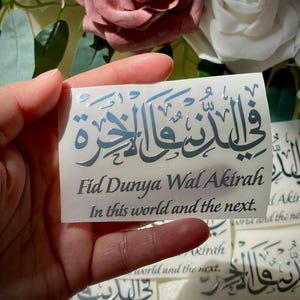 في الدنيا والآخرة
Fid Dunya Wal Akirah
In this world and the next.